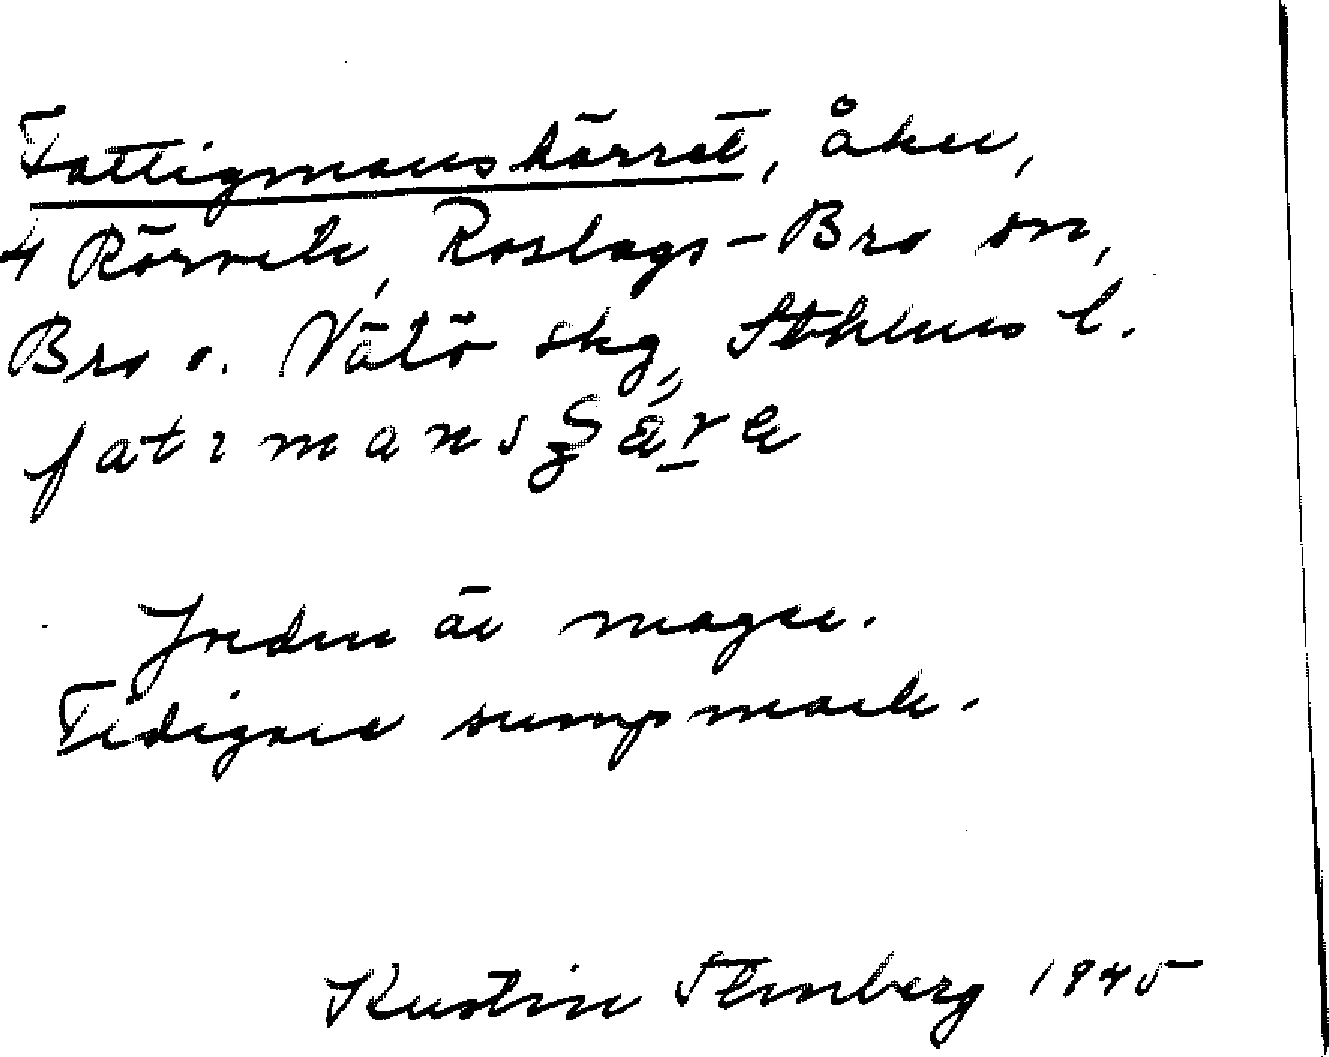 Fattigmanskärret, åker,
4 Rörvik, Roslags-Bro sn,
Bro o. Vätö skg, Sthlms l.
Jorden är mager.
Tidigare sumpmark.
Kerstin Stenberg 1945